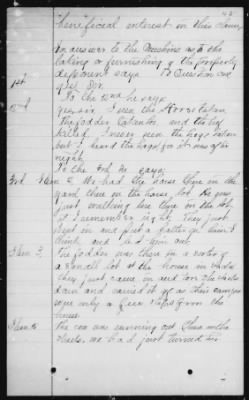 beneficial interest in this Claim
In answer to the Questions as to the
taking or furnishing of the property
deponent says to Question one
1st
Yes Sir.
2nd To the 2nd he says
Yes sir I saw the Horse taken
the fodder taken too, and the beef
killed. I never seen the hogs taken
but I heard the hogs for it was after
night.
To the 3rd he says
3rd Item 1. We had the horse there in the
yard there in the horse lot. He was
just walking bue there in the lot
if I remember right. They just
went in and put a halter on him I
think, and led him out
Item 3. The fodder was there in a corner of
a small lot at the house in stacks
they just came in and tore the stacks
down and carried it off as their camps
were only a few steps from the
house.
Item 4. the cow was running out there in the
we had just turned her